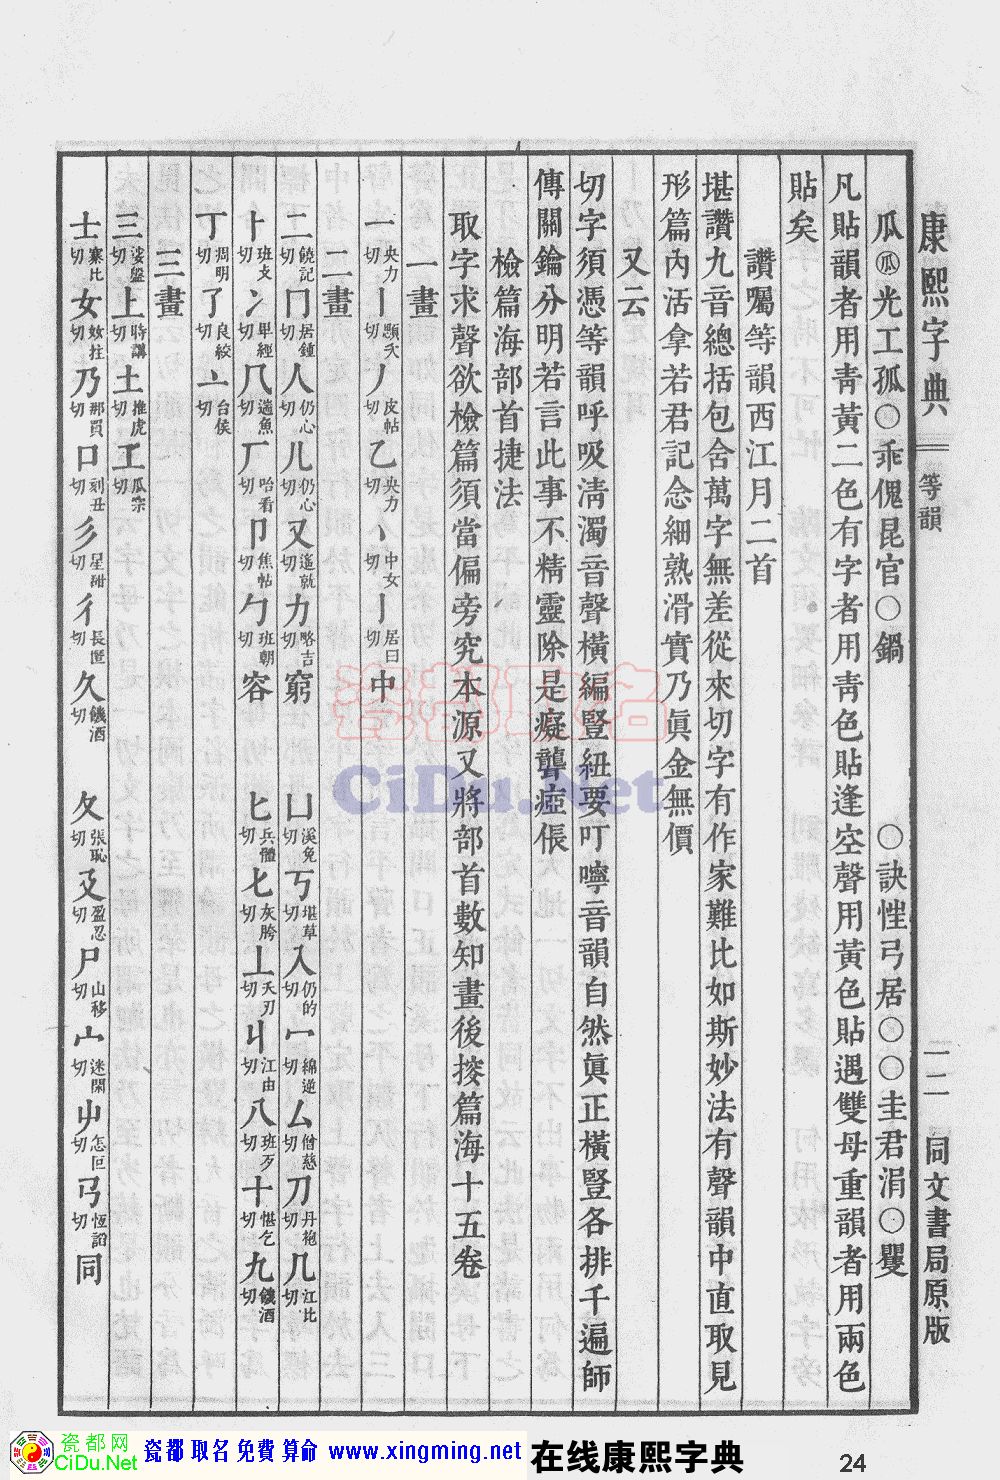 康熙字典 等韻 一二 同文書局原版
瓜㊉光工孤〇乖傀昆官〇鍋 〇訣性弓居〇〇〇圭君涓〇矍
凡貼韻者用靑黃二色有字者用靑色貼逢空聲用黃色貼遇雙母重韻者用兩色
貼矣
讚囑等韻西江月二首
堪讚九音總括包含萬字無差從來切字有作家難比如斯妙法有聲韻中直取見
形篇內活拿若君記念細熟滑實乃眞金無價
又云
切字須憑等韻呼吸淸濁音聲橫編豎紐要叮嚀音韻自然眞正橫豎各排千遍師
傳關鑰分明若言此事不精靈除是癡聾瘂倀
檢篇海部首捷法
取字求聲欲檢篇須當偏旁究本源又將部首數知畫後挨篇海十五卷
一畫
一央力切丨顋夭切丿皮帖切乙央力切丶中女切亅居曰切中
二畫
二饒記切冂居鍾切人仍心切儿仍心切又遙就切力略吉切窮 凵溪免切丂堪草切入仍的切冖綿逆切厶僧慈切刀丹袍切几江比切
十班攴切冫畢經切凡遄魚切厂哈看切卩焦帖切勹班朝切容 匕兵體切𠤎灰胯切丄夭刃切丩江由切八班歹切十愖乞切九饑酒切
丁凋明切了良絞切亠台侯切
三畫
三娑盤切上時講切土推虎切工瓜宗切
士寨比切女妳拄切乃那買切口刻丑切彡星甜切彳長匿切久饑酒切 夂張恥切㕛盈忍切尸山移切宀迷閑切屮怎叵切弓恆韶切同
瓷都取名
CiDu.Net
瓷都网
CiDu.Net
瓷都取名免費算命 www.xingming.net 在线康熙字典 24